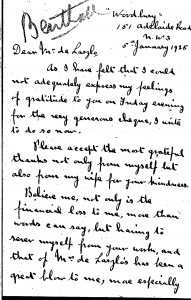 Benthall
Woodbury
151 Adelaide Road
N.W.3
5th January 1925
Dear Mr. de Laszlo,
As I have felt that I could
not adequately express my feelings
of gratitude to you on Friday evening
for the very generous cheque, I write
to do so now.
Please accept the most grateful
thanks not only from myself but
also from my wife for your kindness.
Believe me, not only is the
financial loss to me, more than
words can say, but having to
sever myself from your work, and
that of Mrs de Laszlo's has been a
great blow to me, more especially